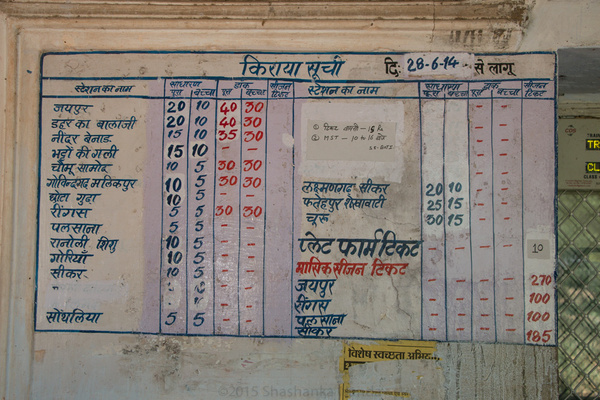 किराया सूची दि: 28-6-14 से लागू
स्टेशन का नाम साधारण डाक सीजन स्टेशन का नाम साधारण डाक सीजन
पूरा बच्चा पूरा बच्चा टिकट पूरा बच्चा पूरा बच्चा टिकट
जयपुर 20 10 40 30
डहर का बालाजी 20 10 40 30
नींदर बेनाड 15 10 35 30
भट्टों की गली 15 10 - -
चौमू सामोद 10 5 30 30
गोविन्दगढ़ मलिकपुर 10 5 30 30
छोटा गुढ़ा 10 5 - -
रींगस 5 5 30 30
पलसाना 5 5 - -
रानोली शिशु 10 5 - -
गोरियाँ 10 5 - -
सीकर 10 5 - -
सोंथलिया 5 5 - -
लक्ष्मणगढ़ सीकर 20 10 - -
फतेहपुर शेखावाटी 25 15 - -
चूरू 30 15 - -
प्लेट फार्म टिकट 10
मासिक सीजन टिकट
जयपुर - - - - 270
रींगस - - - - 100
पलसाना - - - - 100
सीकर - - - - 185
विशेष स्वच्छता
©2015 Shashanka